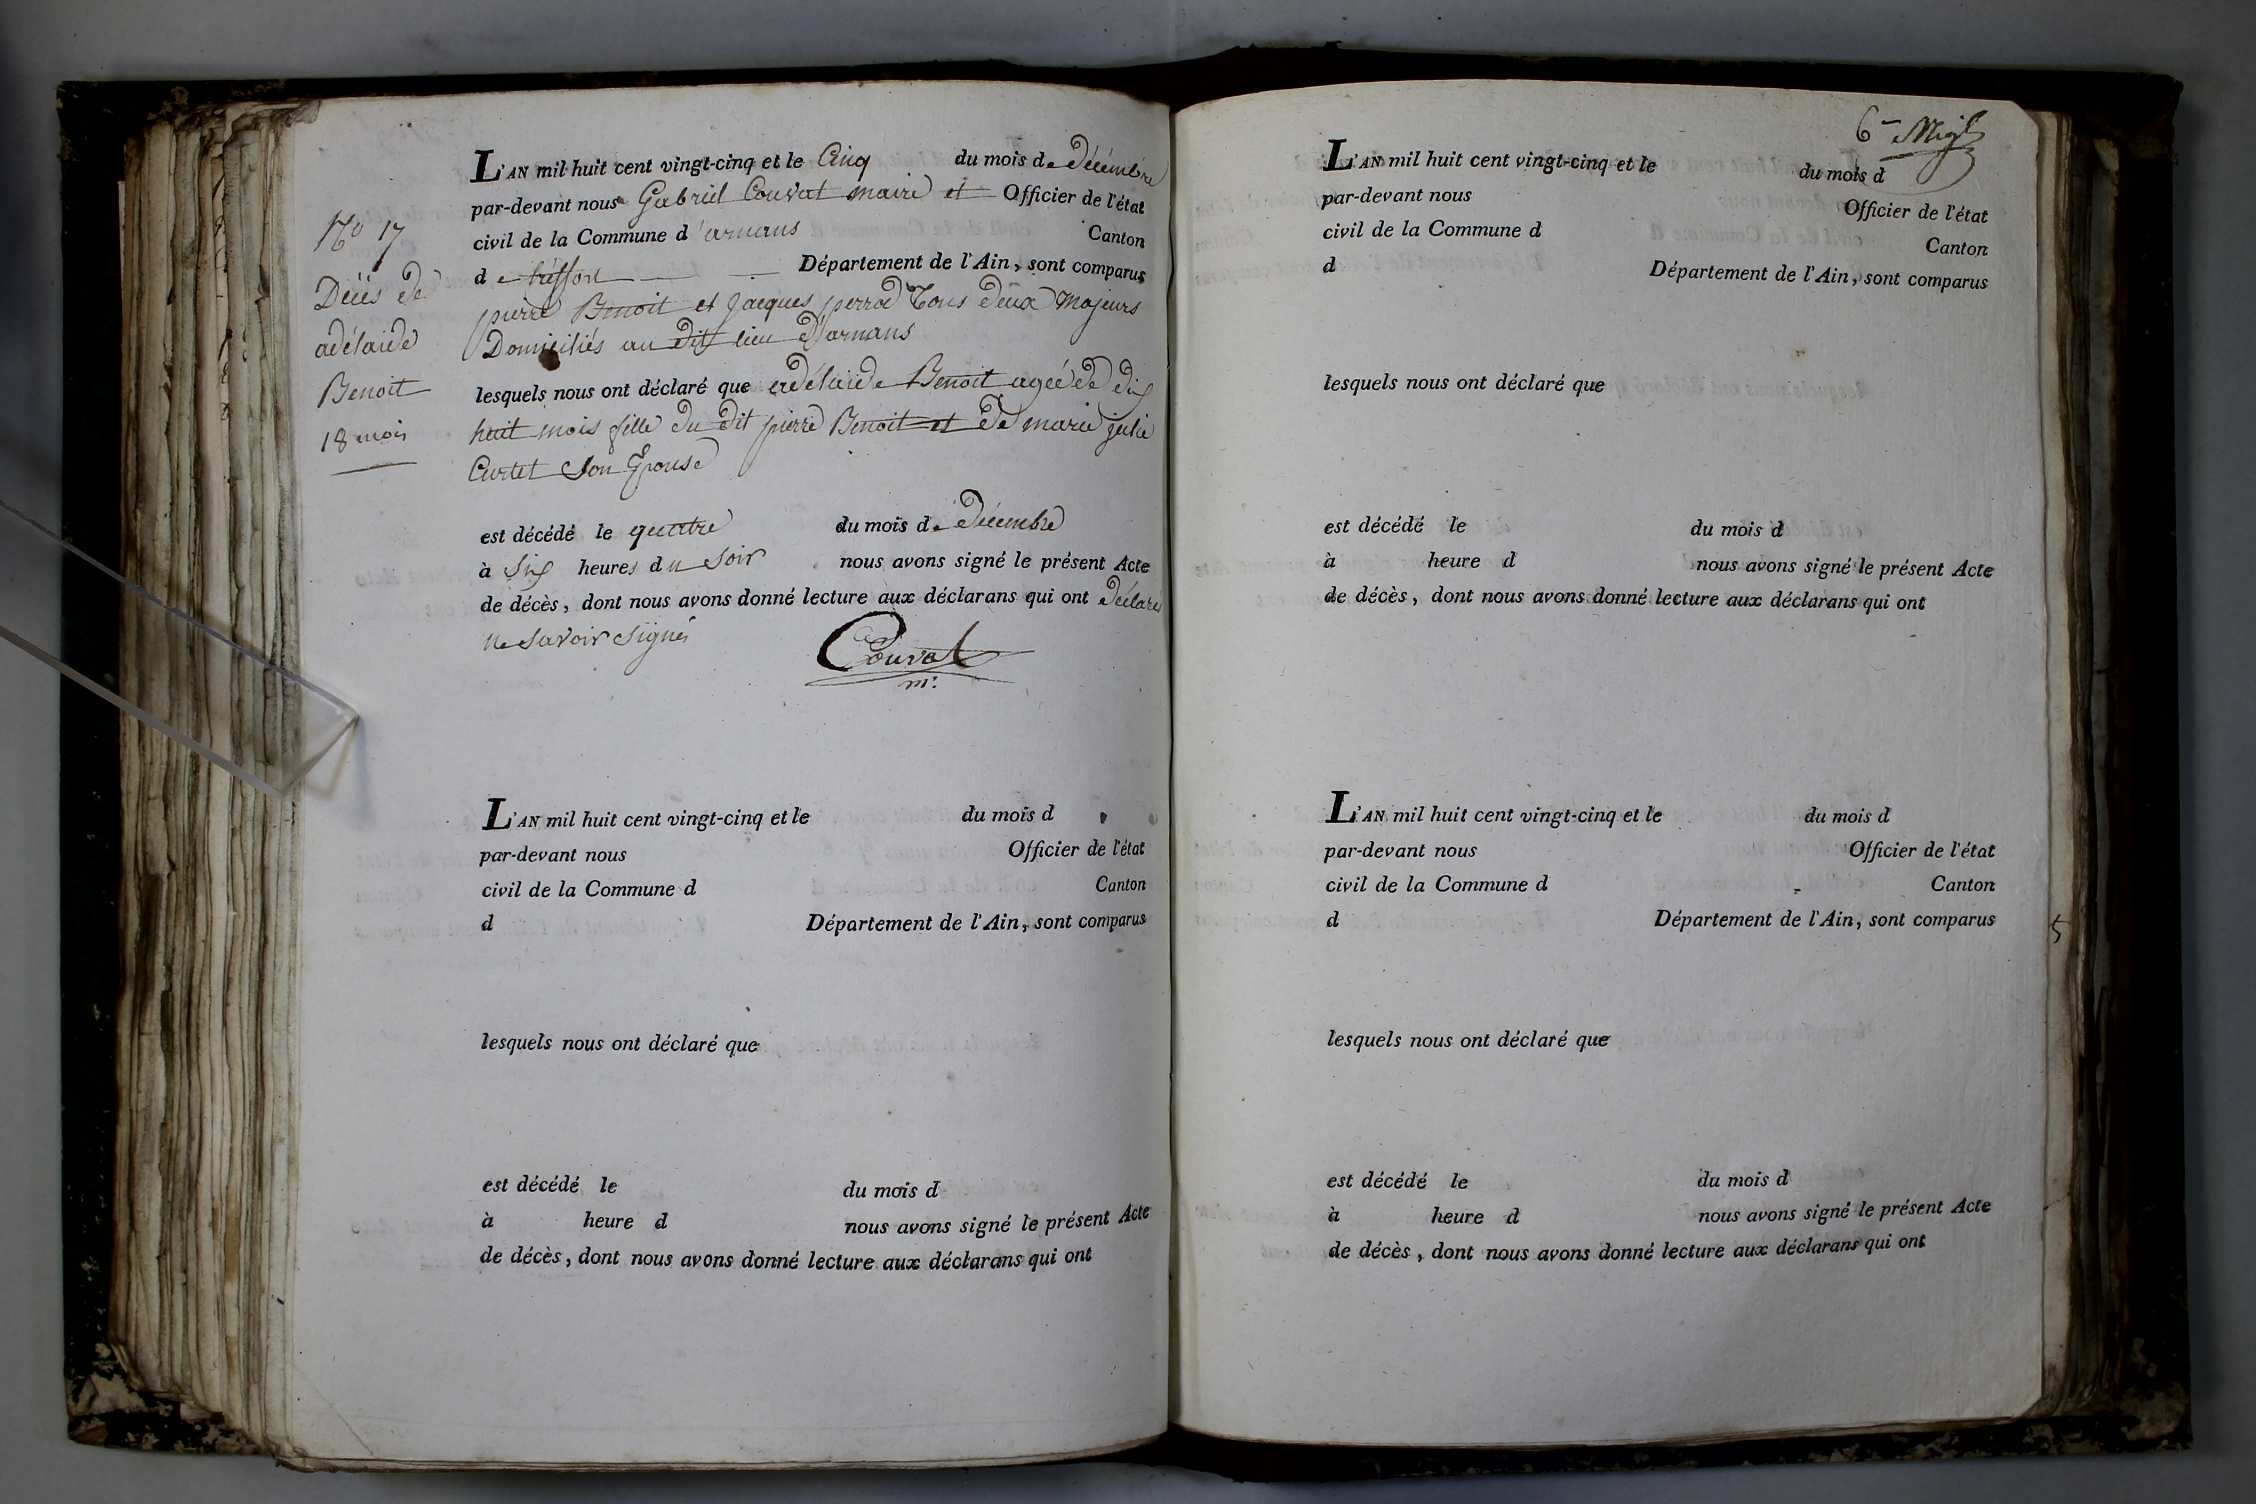 N° 17
Décès de
adélaide
Benoit
18 mois
L'AN mil huit cent vingt-cinq et le Cinq du mois de Décembre
par-devant nous Gabriel Couvat maire et Officier de l'état
civil de la Commune d'arnans Canton
de treffort Département de l'Ain, sont comparus
pierre Benoit et Jacques perrod Tous deux Majeurs
Domiciliés au dit lieu D'arnans
lesquels nous ont déclaré que adélaide Benoit agée de dix
huit mois fille du dit pierre Benoit et de marie julie
Curtet Son Epouse
est décédé le quatre du mois de Décembre
à Six heures du Soir nous avons signé le présent Acte
de décès, dont nous avons donné lecture aux déclarans qui ont Déclarés
ne Savoir Signés
Couvat
m:
L'AN mil huit cent vingt-cinq et le du mois d
par-devant nous Officier de l'état
civil de la Commune d Canton
d Département de l'Ain, sont comparus
lesquels nous ont déclaré que
est décédé le du mois d
à heure d nous avons signé le présent Acte
de décès, dont nous avons donné lecture aux déclarans qui ont
6
L'AN mil huit cent vingt-cinq et le du mois d
par-devant nous Officier de l'état
civil de la Commune d Canton
d Département de l'Ain, sont comparus
lesquels nous ont déclaré que
est décédé le du mois d
à heure d nous avons signé le présent Acte
de décès, dont nous avons donné lecture aux déclarans qui ont
L'AN mil huit cent vingt-cinq et le du mois d
par-devant nous Officier de l'état
civil de la Commune d Canton
d Département de l'Ain, sont comparus
5
lesquels nous ont déclaré que
est décédé le du mois d
à heure d nous avons signé le présent Acte
de décès, dont nous avons donné lecture aux déclarans qui ont